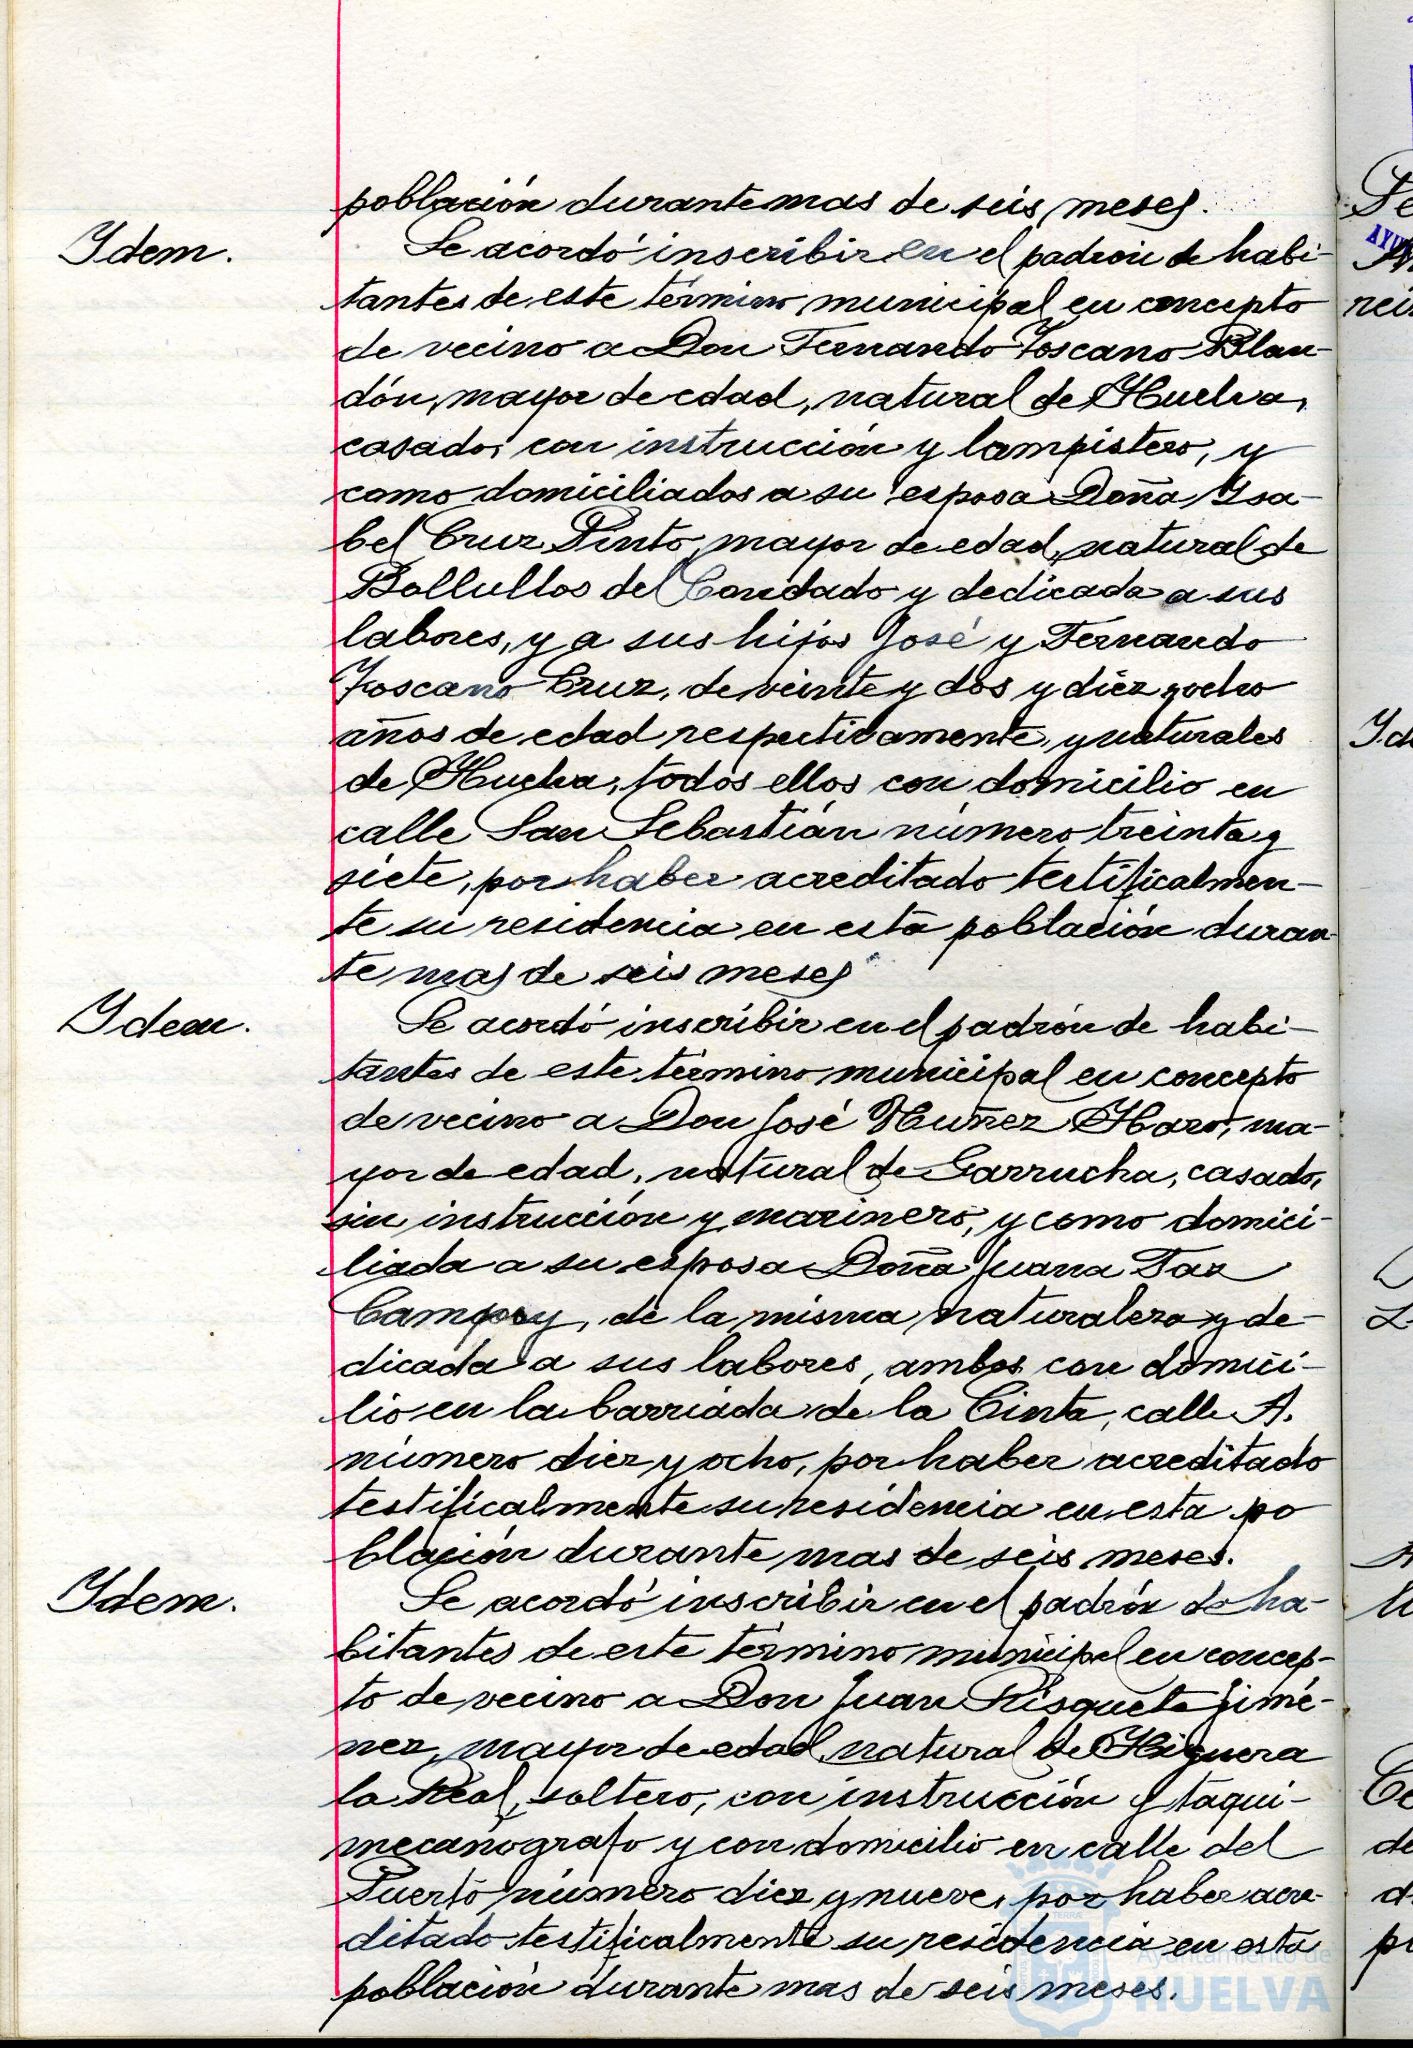 población durante mas de seis meses.
Idem.
Se acordó inscribir en el padrón de habi-
tantes de este término municipal en concepto
de vecino a Don Fernando Toscano Blan-
dón, mayor de edad, natural de Huelva,
casado, con instrucción y lampistero, y
como domiciliados a su esposa Doña Isa-
bel Cruz Pinto, mayor de edad, natural de
Bollullos del Condado y dedicada a sus
labores, y a sus hijos José y Fernando
Toscano Cruz, de veinte y dos y diez y ocho
años de edad respectivamente, y naturales
de Huelva, todos ellos con domicilio en
calle San Sebastián número treinta y
siete, por haber acreditado testificalmen-
te su residencia en esta población duran
te mas de seis meses
Idem.
Se acordó inscribir en el padrón de habi-
tantes de este término municipal en concepto
de vecino a Don José Nuñez Haro, ma-
yor de edad, natural de Garrucha, casado,
sin instrucción y marinero, y como domici-
liada a su esposa Doña Juana Paz
Campoy, de la misma naturaleza y de-
dicada a sus labores, ambos con domici-
lio en la barriada de la Cinta, calle A.
número diez y ocho, por haber acreditado
testificalmente su residencia en esta po
blación durante mas de seis meses.
Idem.
Se acordó inscribir en el padrón de ha-
bitantes de este término municipal en concep-
to de vecino a Don Juan Risquete Jimé-
nez, mayor de edad, natural de Higuera
la Real, soltero, con instrucción y taqui-
mecanógrafo y con domicilio en calle del
Puerto número diez y nueve, por haber acre-
ditado testificalmente su residencia en esta
población durante mas de seis meses.
Ayuntamiento de
HUELVA